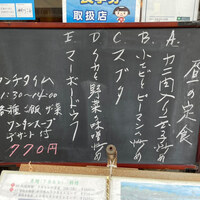 取扱店
昼の定食
A. カニ肉入り玉子炒め
B. エビとピーマン炒め
C. スブタ
D. イカと野菜の味噌炒め
E. マーボードウフ
ランチタイム
11:30〜14:00
各種ご飯
ワンタンスープ
デザート付
770円